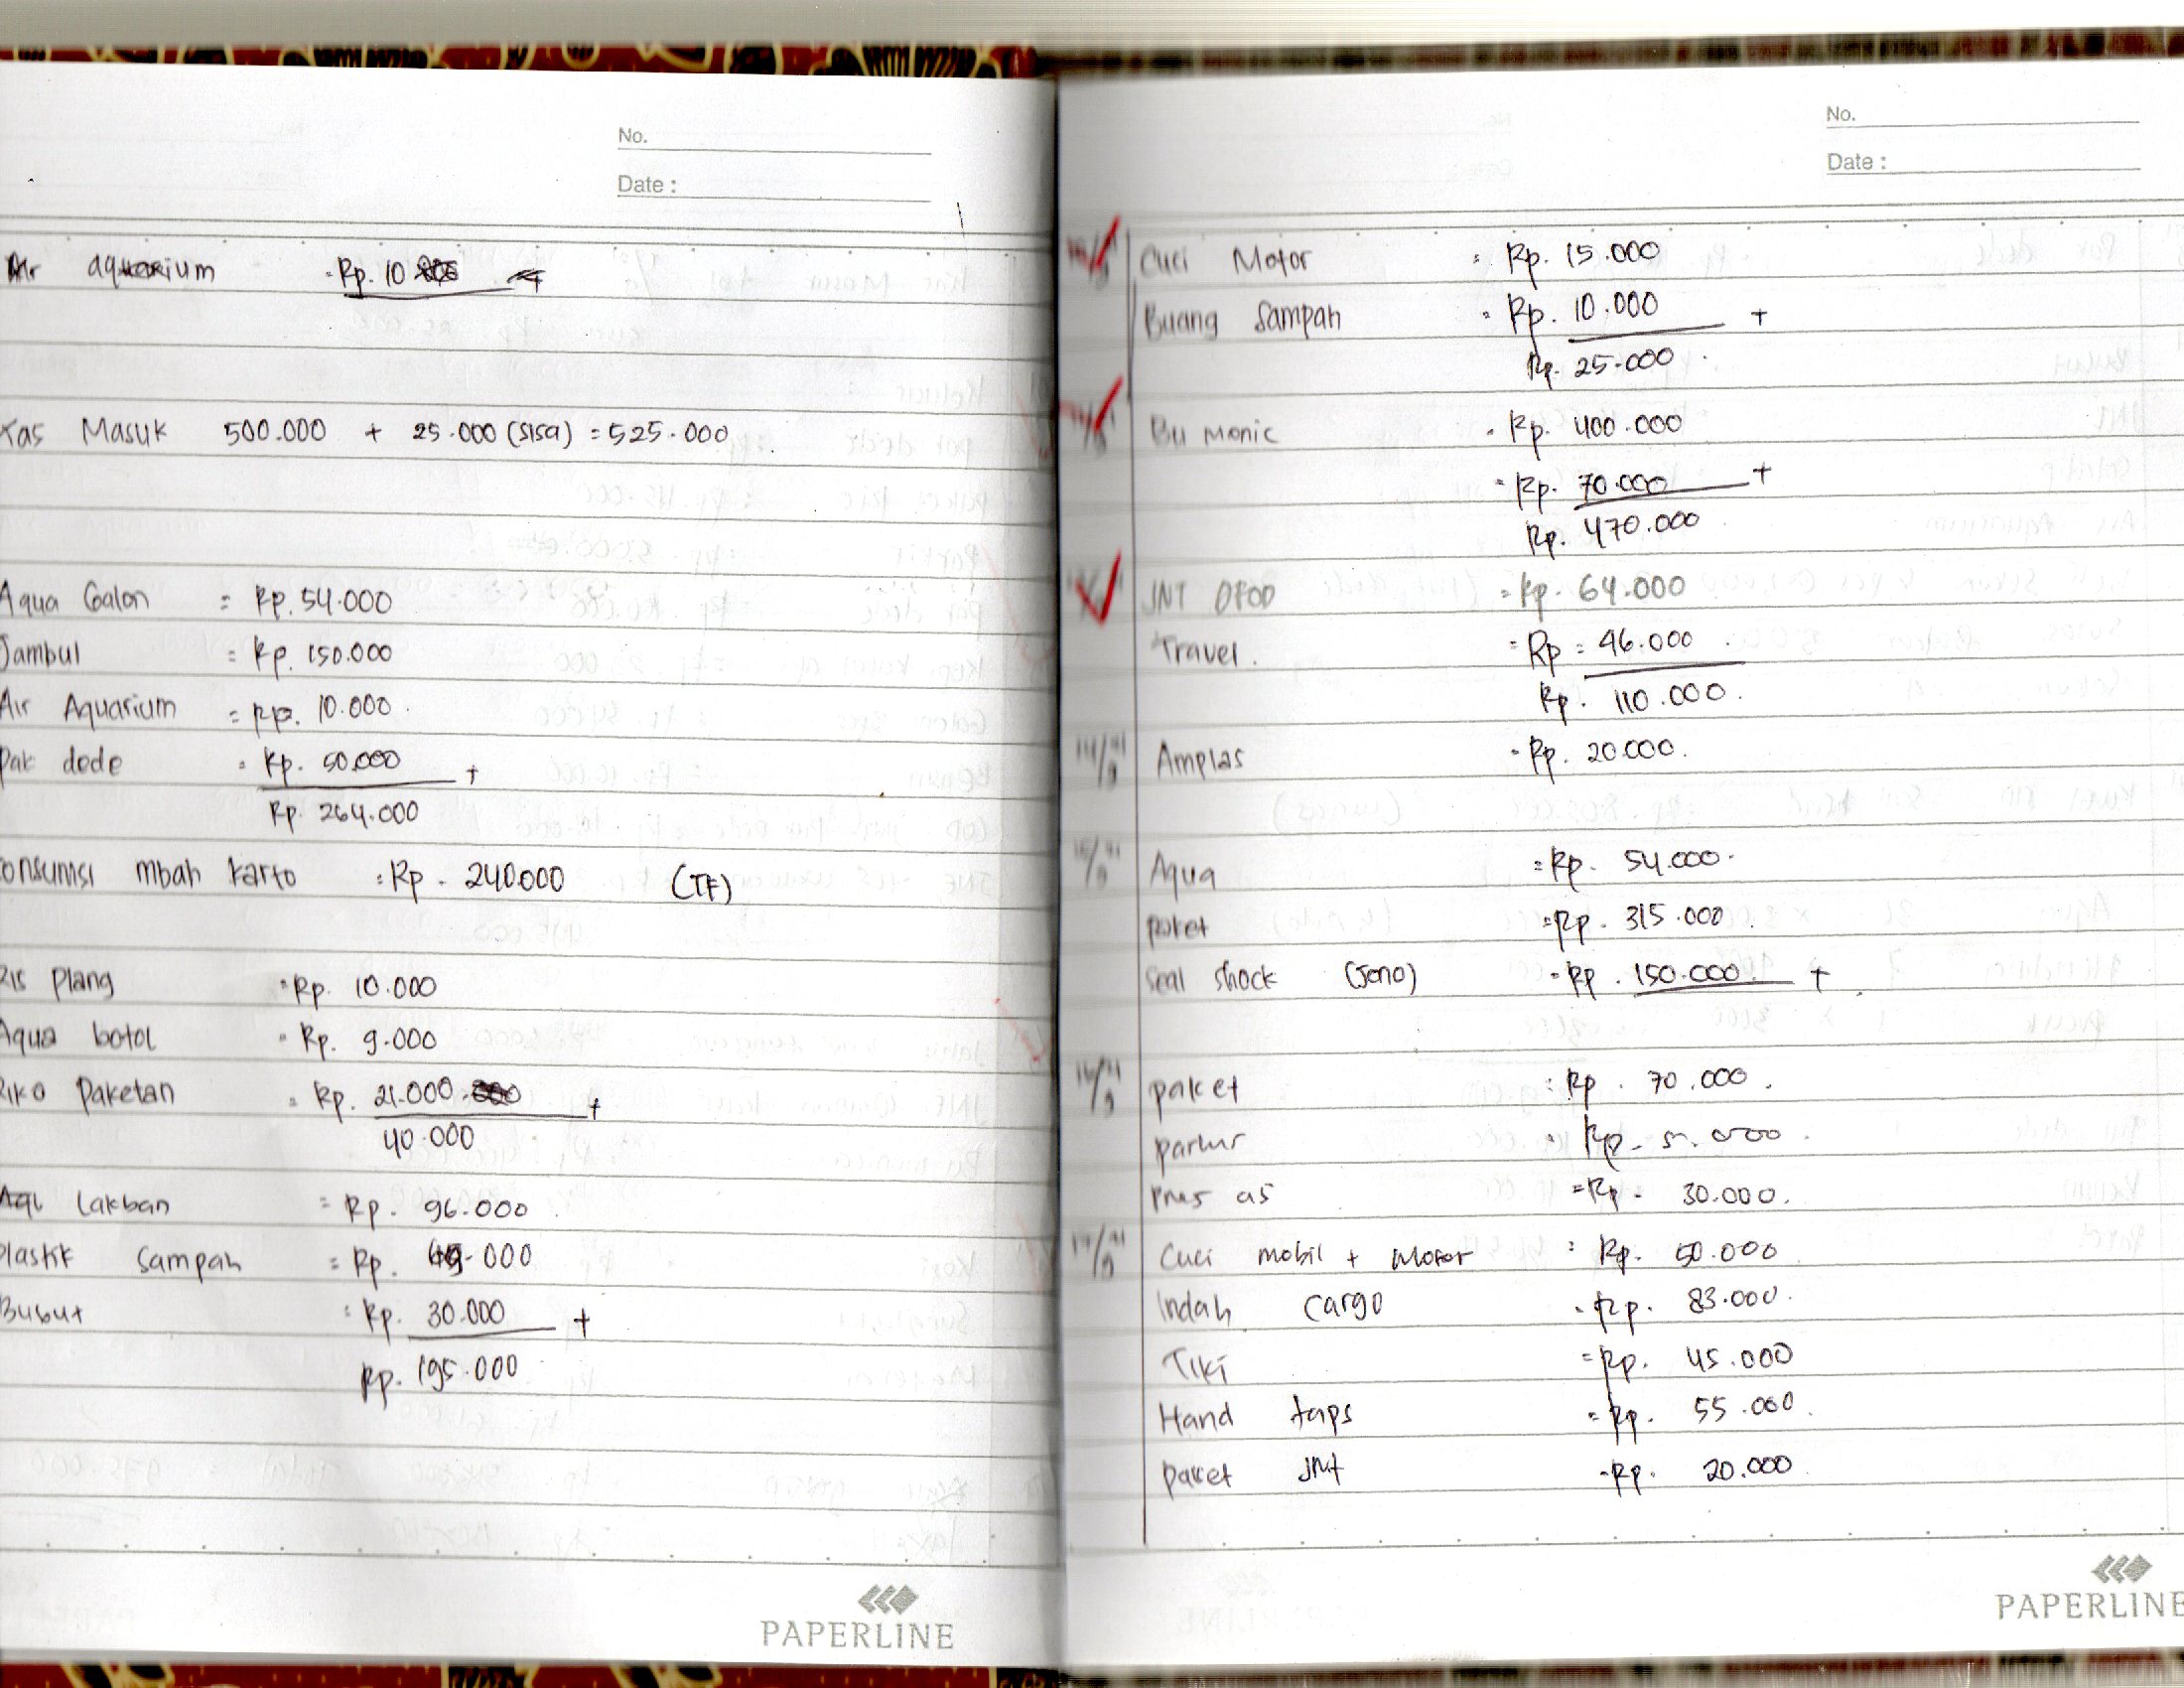 No.
Date :
Air aquarium = Rp. 10
Kas Masuk 500.000 + 25.000 (sisa) = 525.000
Aqua Galon = Rp. 54.000
Jambul = Rp. 150.000
Air Aquarium = Rp. 10.000
Pak dede = Rp. 50.000 +
Rp. 264.000
onsumsi mbah karto = Rp. 240.000 (TF)
Ris Plang = Rp. 10.000
Aqua botol = Rp. 9.000
Riko Paketan = Rp. 21.000 +
40.000
Lakban = Rp. 96.000
Plastik Sampah = Rp. .000
Bubut = Rp. 30.000 +
Rp. 195.000
PAPERLINE
No.
Date :
Cuci Motor = Rp. 15.000
Buang Sampah = Rp. 10.000 +
Rp. 25.000
Bu Monic = Rp. 400.000
= Rp. 70.000 +
Rp. 470.000
JNT DFOD = Rp. 64.000
Travel. = Rp = 46.000
Rp. 110.000
14/9 Amplas = Rp. 20.000
15/9 Aqua = Rp. 54.000
paket = Rp. 315.000
Seal Shock (Jono) = Rp. 150.000 +
16/9 paket = Rp. 70.000
parkir = Rp. 5.000
pres as = Rp. 30.000
17/9 Cuci mobil + Motor = Rp. 50.000
Indah Cargo = Rp. 83.000
Tiki = Rp. 45.000
Hand taps = Rp. 55.000
paket JNT = Rp. 20.000
PAPERLINE